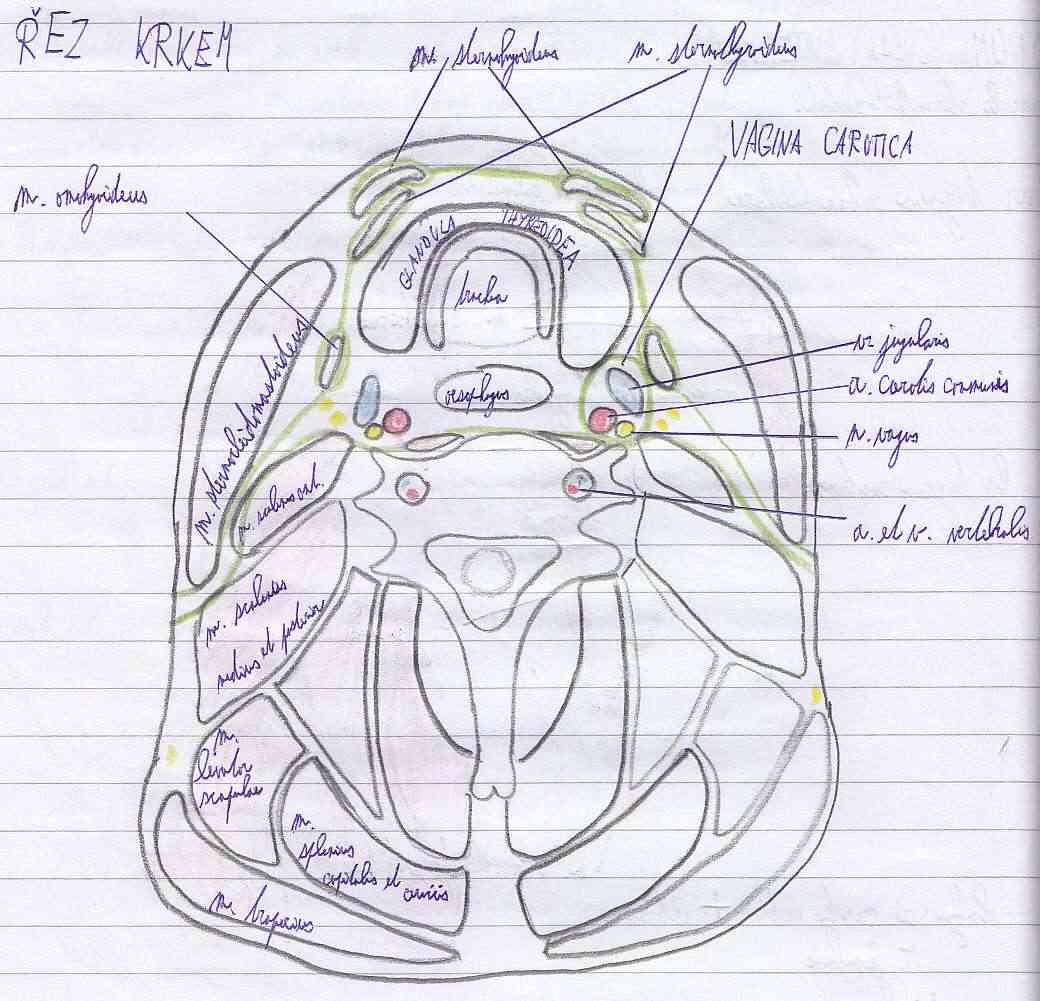 ŘEZ KRKEM
mm. sternohyoideus
m. sternothyroideus
VAGINA CAROTICA
m. omohyoideus
GLANDULA THYREOIDEA
trachea
v. jugularis
a. carotis communis
n. vagus
oesophagus
m. sternocleidomastoideus
m. scalenus ant.
a. et v. vertebralis
m. scalenus
medius et posterior
m.
levator
scapulae
m.
splenius
capitis et
cervicis
m. trapezius